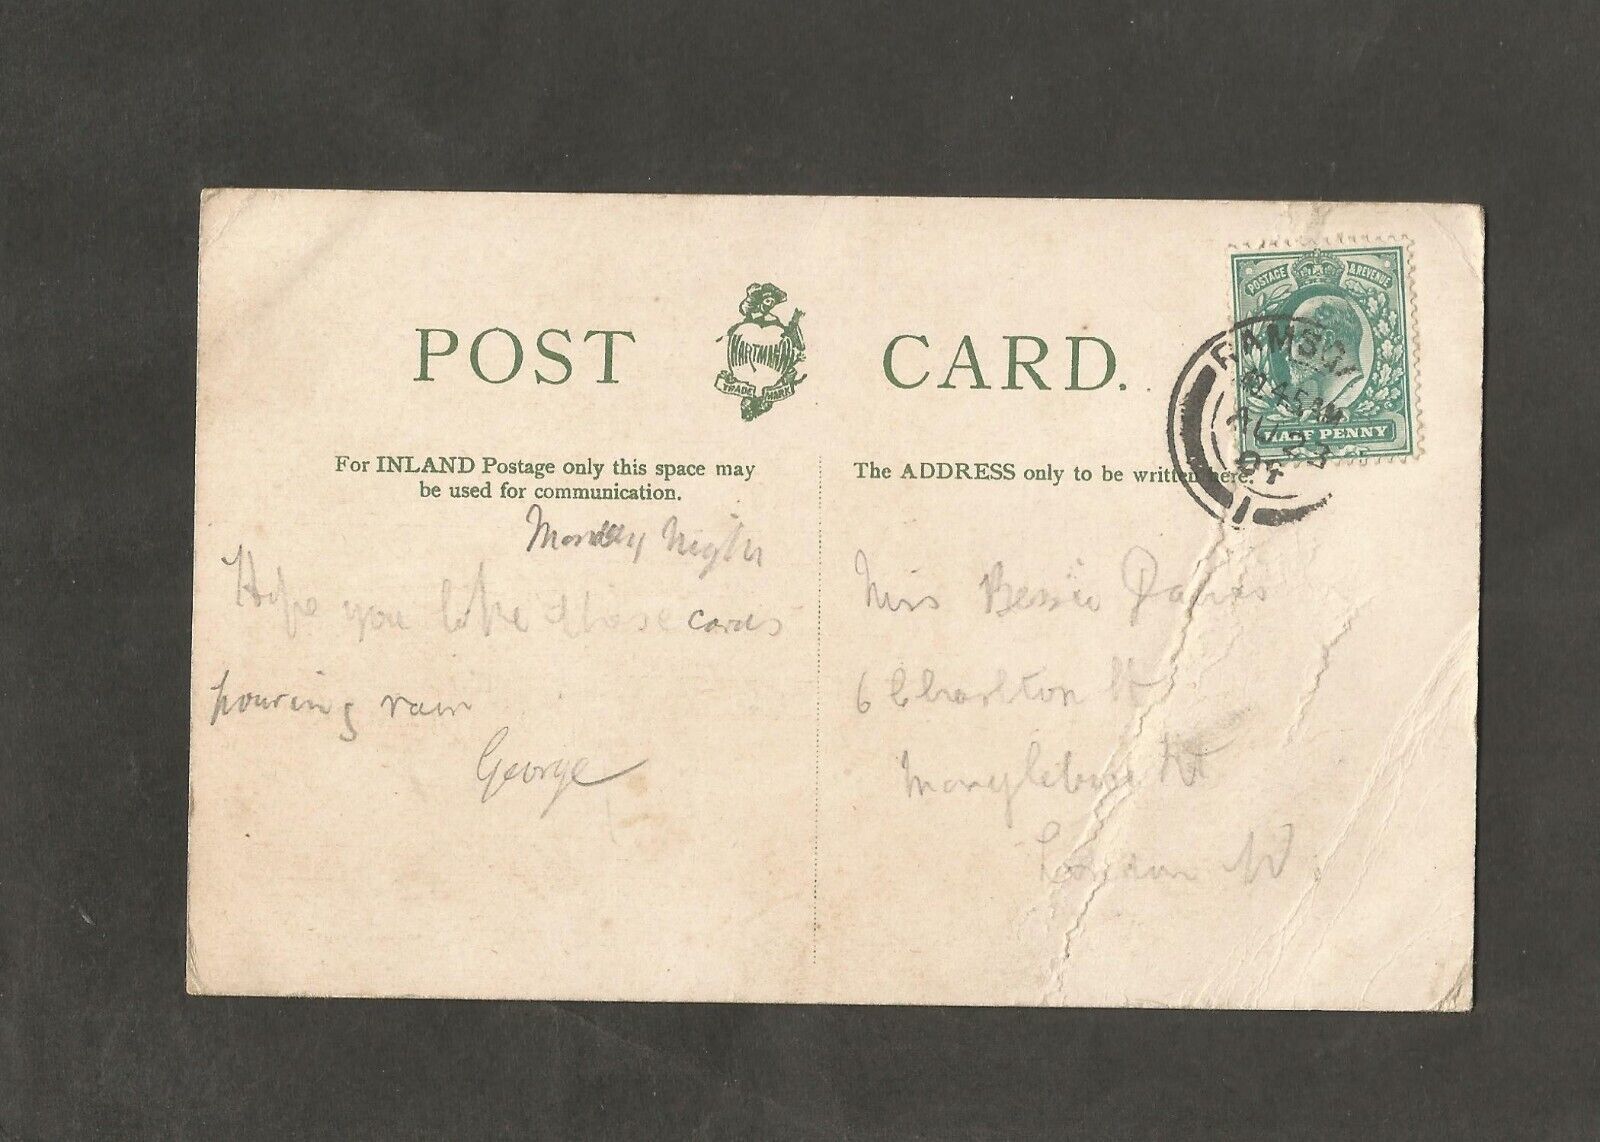 POST CARD.
HARTMANN
TRADE MARK
POSTAGE & REVENUE
HALF PENNY
RAMSGA
10 45 AM
AU 23
04
1
For INLAND Postage only this space may
be used for communication.
The ADDRESS only to be written here.
Monday Night
Hope you like these cards
pouring rain
George
Miss Bessie
6 Charlton St
Marylebone
London W